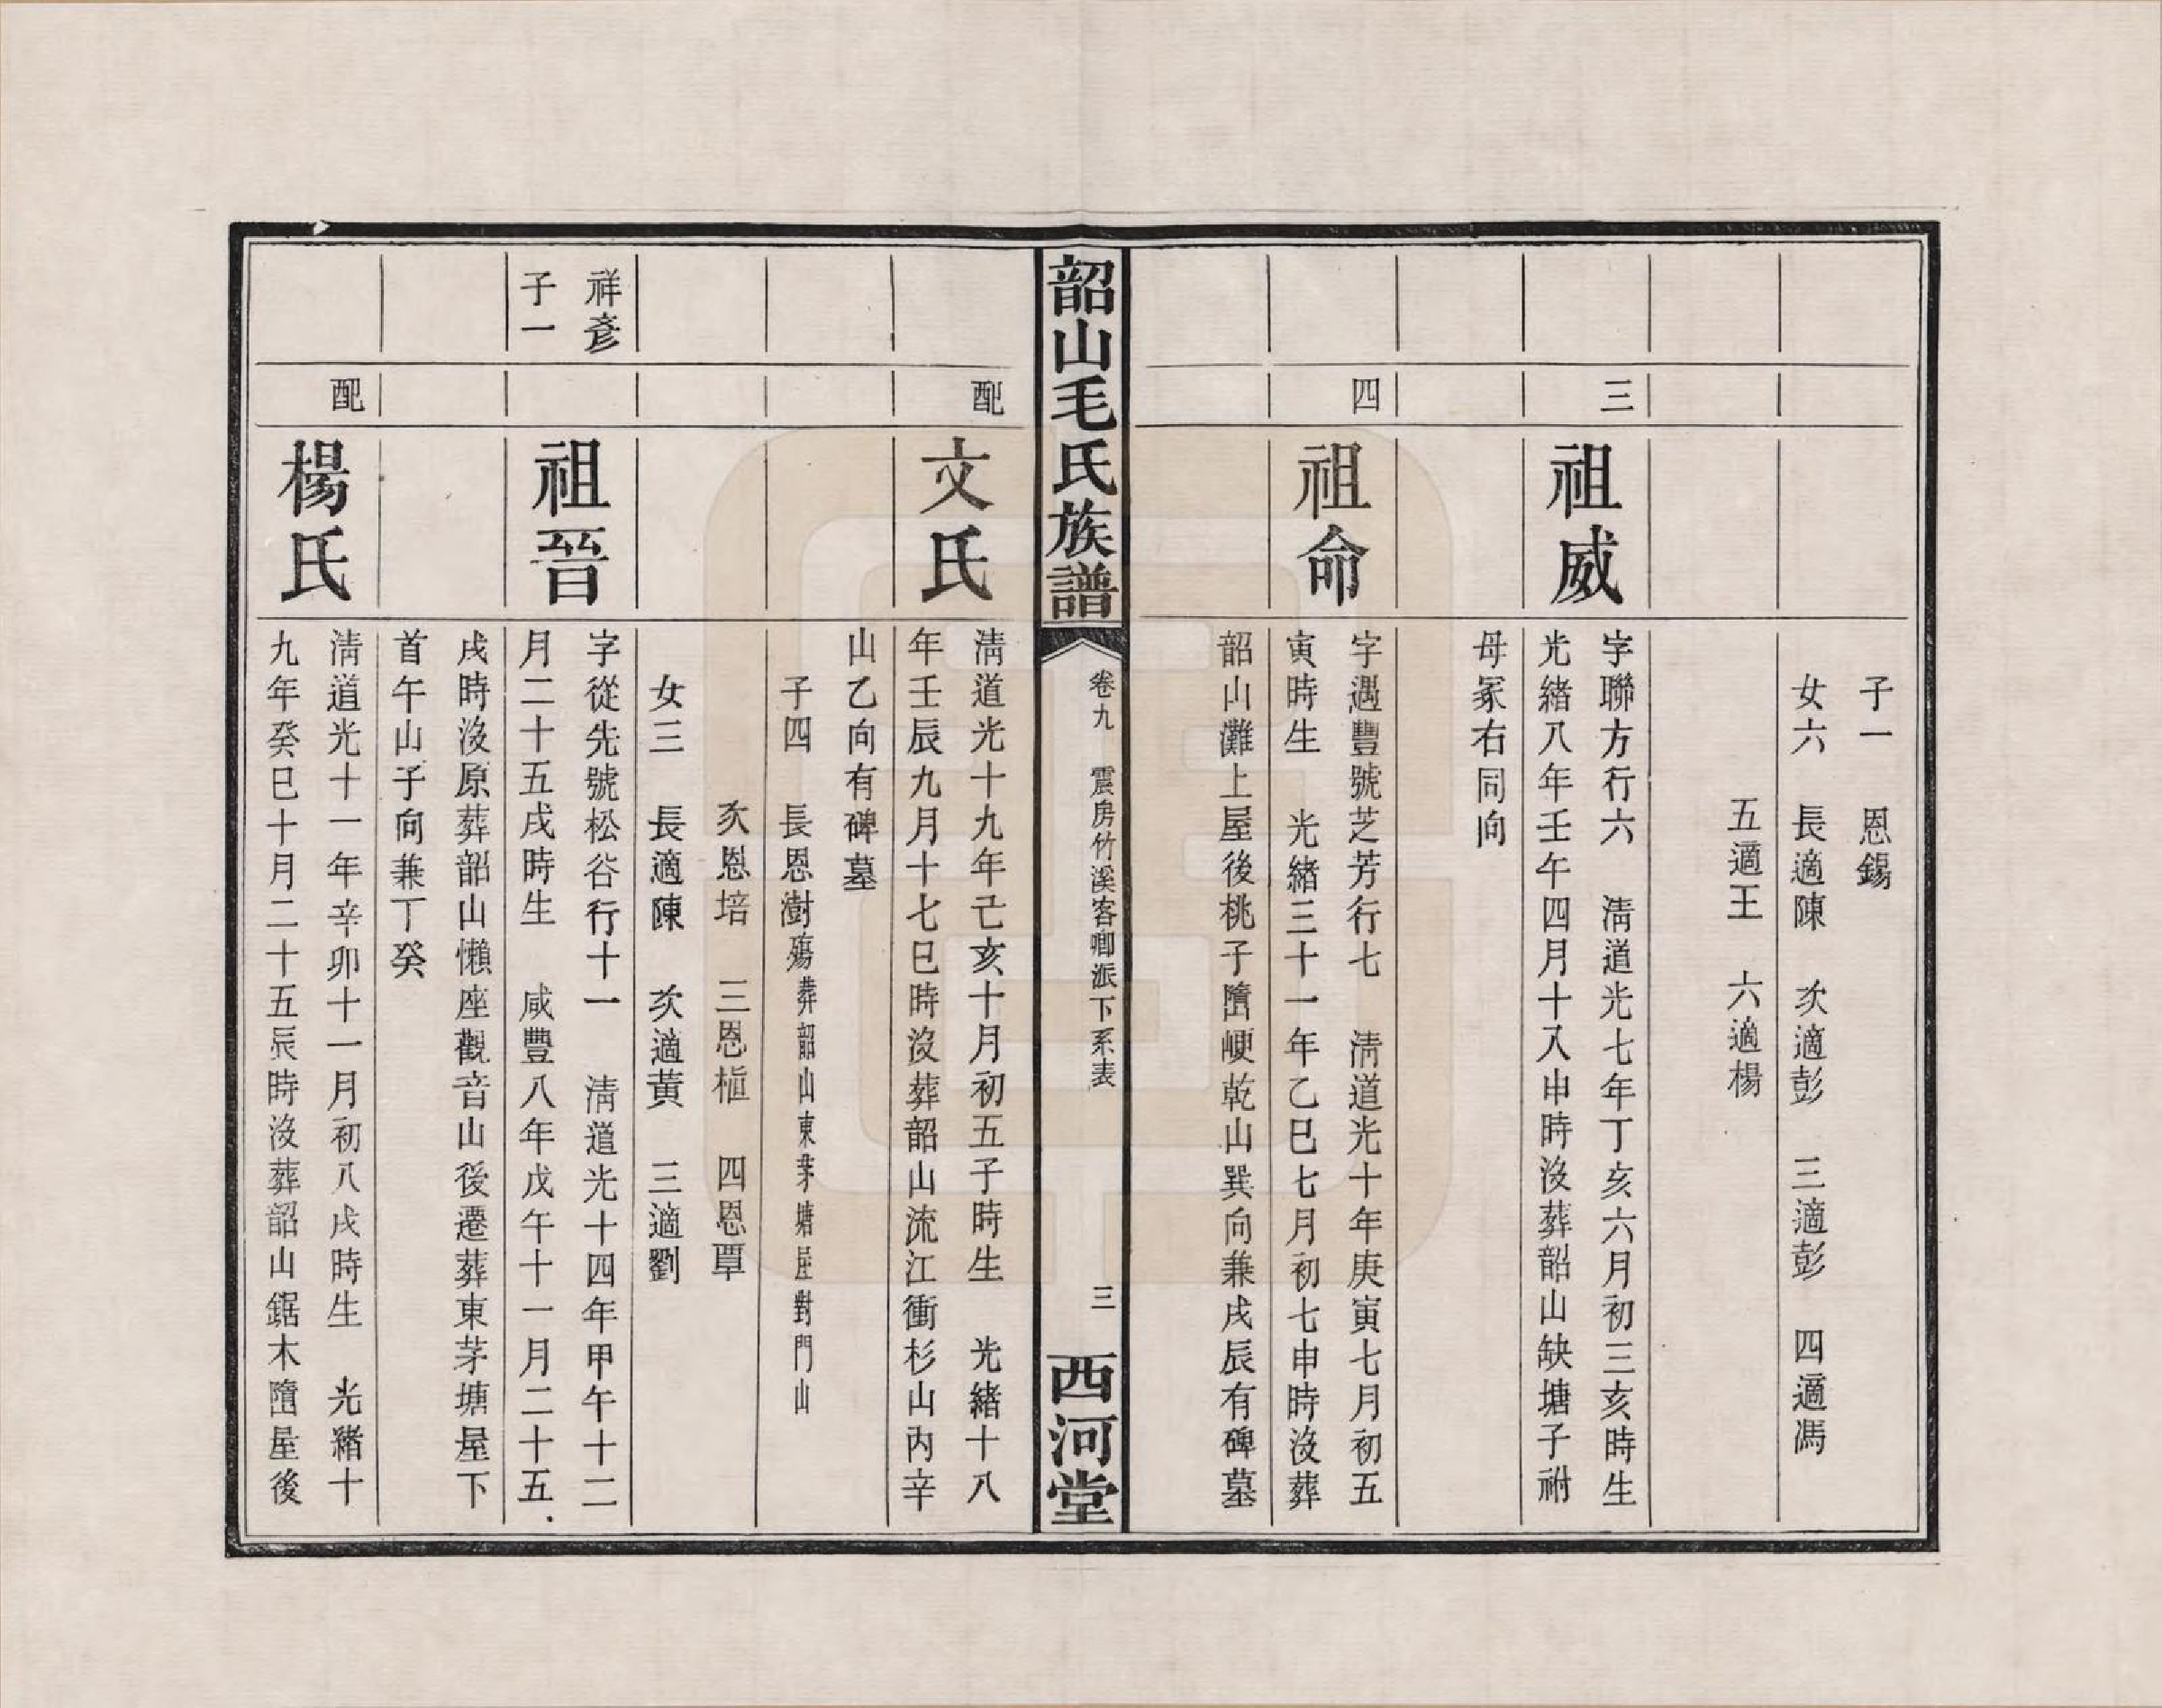 子一　恩錫
女六　長適陳　次適彭　三適彭　四適馮
五適王　六適楊
三
祖威
字聯方行六　淸道光七年丁亥六月初三亥時生
光緖八年壬午四月十八申時沒葬韶山缺塘子祔
母冢右同向
四
祖命
字遇豐號芝芳行七　淸道光十年庚寅七月初五
寅時生　光緖三十一年乙巳七月初七申時沒葬
韶山灘上屋後桃子墮㟰乾山巽向兼戌辰有碑墓
韶山毛氏族譜
卷九　震房竹溪客卿派下系表
三
西河堂
配
文氏
淸道光十九年己亥十月初五子時生　光緖十八
年壬辰九月十七巳時沒葬韶山流江衝杉山內辛
山乙向有碑墓
子四　長恩澍殤葬韶山東茅塘屋對門山
次恩培　三恩植　四恩覃
女三　長適陳　次適黃　三適劉
祥彥
子一
祖晉
字從先號松谷行十一　淸道光十四年甲午十二
月二十五戌時生　咸豐八年戊午十一月二十五
戌時沒原葬韶山懶座觀音山後遷葬東茅塘屋下
首午山子向兼丁癸
配
楊氏
淸道光十一年辛卯十一月初八戌時生　光緖十
九年癸巳十月二十五辰時沒葬韶山鋸木墮屋後